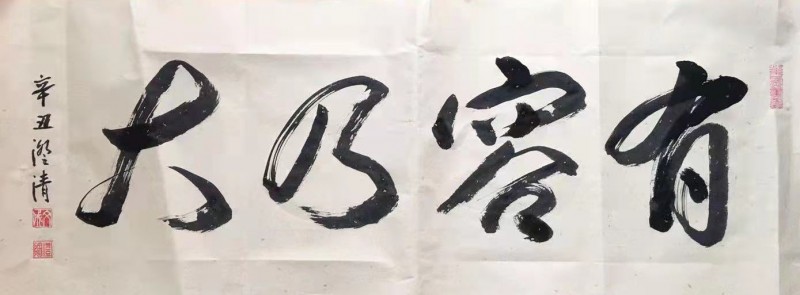 有容乃大
辛丑澄清